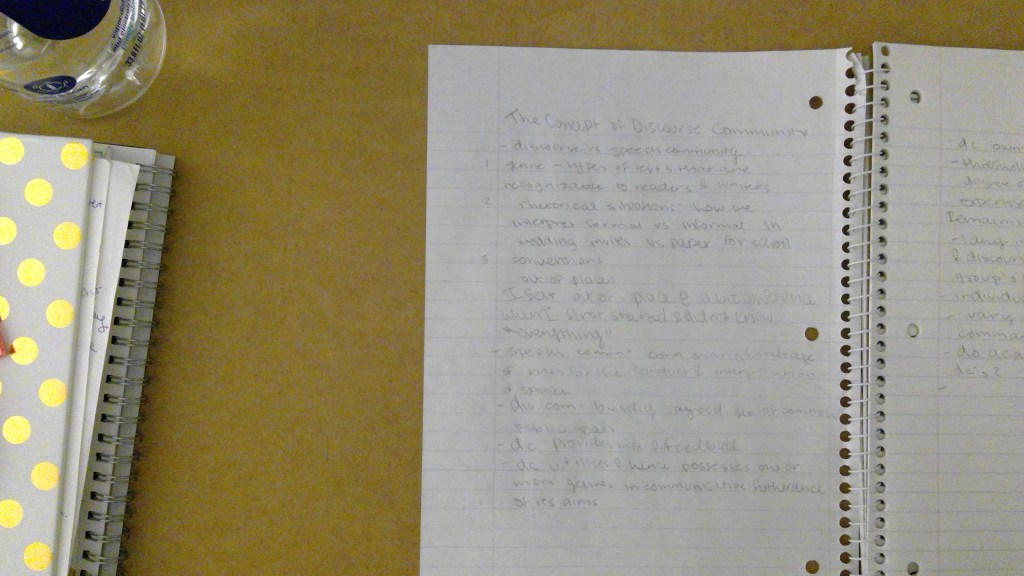 The Concept of Discourse Community
- discourse vs speech community
1 genre - types of texts that are
recognizable to readers & writers
2 rhetorical situations: how we
interpret formal vs informal in
wedding invites vs paper for school
3 conversions
out of place:
I felt out of place &
when I first started & didn't know
"everything"
- speech comm- com sharing knowledge
of rules for the conduct & interpretation
of speech
- dis com- broadly agreed set of common
public goals
- dc provides info & feedback
- dc utilizes & hence possesses one or
more genres in communicative furtherance
of its aims
- dc own
- threshold
degree of
expertise
Remaining
- lang
& discour
group's
- individu
- vary
comman
- do aca
dc's?
-